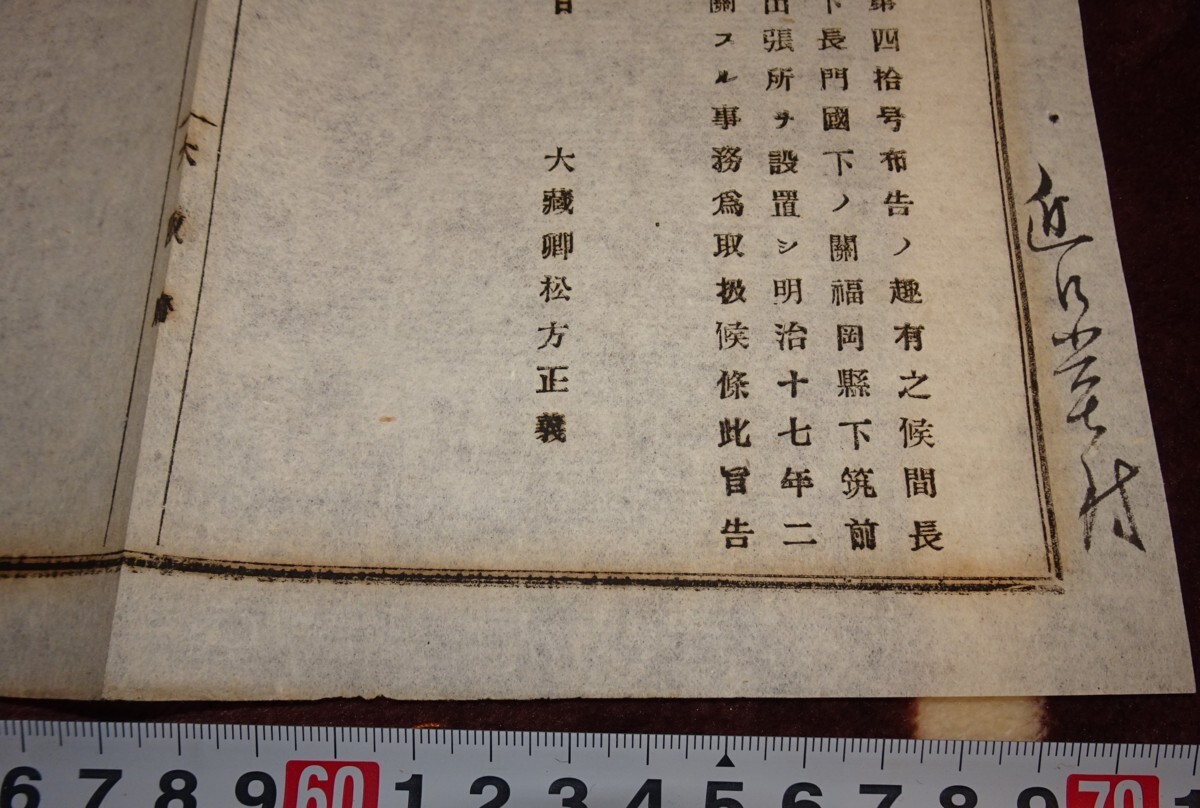 第四拾号布告ノ趣有之候間長
下長門國下ノ關福岡縣下筑前
出張所ヲ設置シ明治十七年二
關スル事務爲取扱候條此旨告
日
大藏卿松方正義
大
6 7 8 9 60 1 2 3 4 5 6 7 8 9 70 1